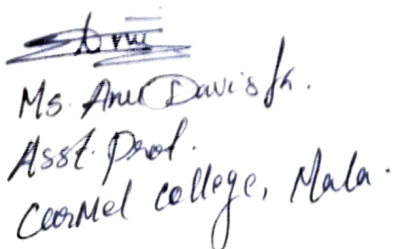 Ms. Anu Davis K.
Asst. Prof.
Carmel College, Mala.